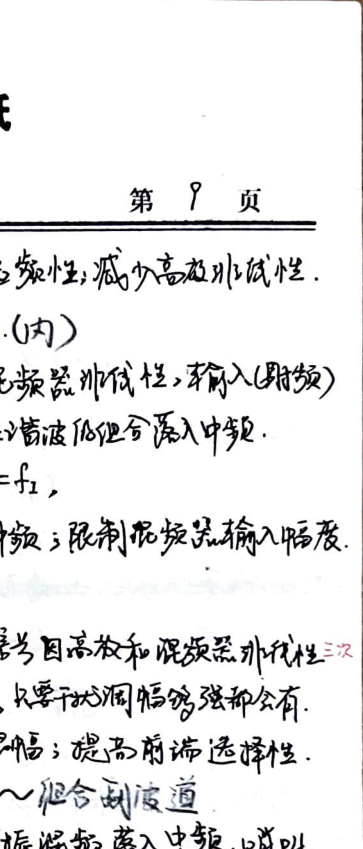 纸
第 9 页
频性;减少高放非线性.
.(内)
混频器非线性,输入(射频)
谐波的组合落入中频.
=f_I,
中频;限制混频器输入幅度.
信号因高放和混频器非线性三次
,只要干扰调幅够强都会有.
幅;提高前端选择性.
～组合副波道
混频落入中频,